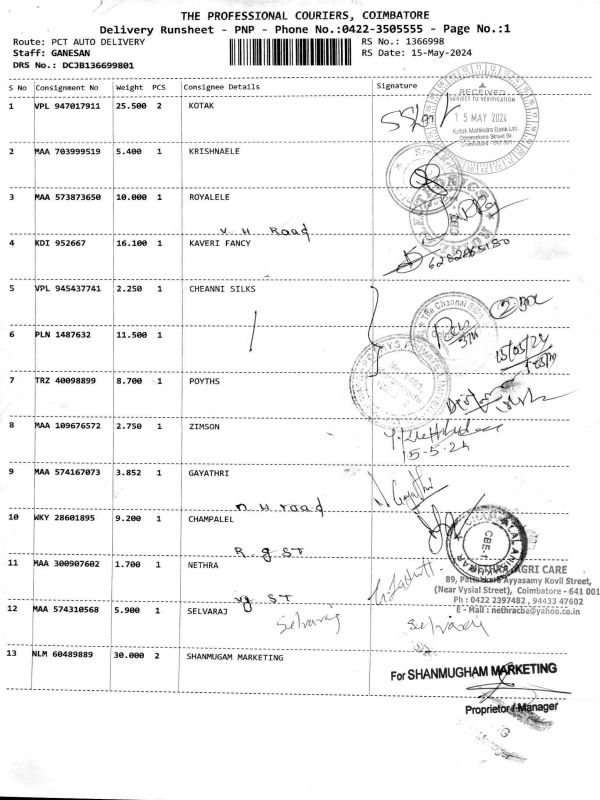 THE PROFESSIONAL COURIERS, COIMBATORE
Delivery Runsheet - PNP - Phone No.:0422-3505555 - Page No.:1
Route: PCT AUTO DELIVERY RS No.: 1366998
Staff: GANESAN RS Date: 15-May-2024
DRS No.: DCJB136699801
S No Consignment No Weight PCS Consignee Details Signature
1 VPL 947017911 25.500 2 KOTAK
RECEIVED
SUBJECT TO VERIFICATION
15 MAY 2024
Kotak Mahindra Bank Ltd.
2 MAA 703999519 5.400 1 KRISHNAELE
3 MAA 573873650 10.000 1 ROYALELE
V H Road
4 KDI 952667 16.100 1 KAVERI FANCY
5 VPL 945437741 2.250 1 CHEANNI SILKS
The Channai Silks
6 PLN 1487632 11.500 1
15/05/24
7 TRZ 40098899 8.700 1 POYTHS
8 MAA 109676572 2.750 1 ZIMSON
15-5-24
9 MAA 574167073 3.852 1 GAYATHRI
Gayathri
n H road
10 WKY 28601895 9.200 1 CHAMPALEL
CBE-1
R g ST
11 MAA 300907602 1.700 1 NETHRA
NETHRA AGRI CARE
89, Ayyasamy Kovil Street,
(Near Vysial Street), Coimbatore - 641 001
Ph : 0422 2397482 , 94433 47602
E - Mail : nethracba@yahoo.co.in
vg ST
12 MAA 574310568 5.900 1 SELVARAJ
Selvaraj Selvaraj
13 NLM 60489889 30.000 2 SHANMUGAM MARKETING
For SHANMUGHAM MARKETING
Proprietor / Manager